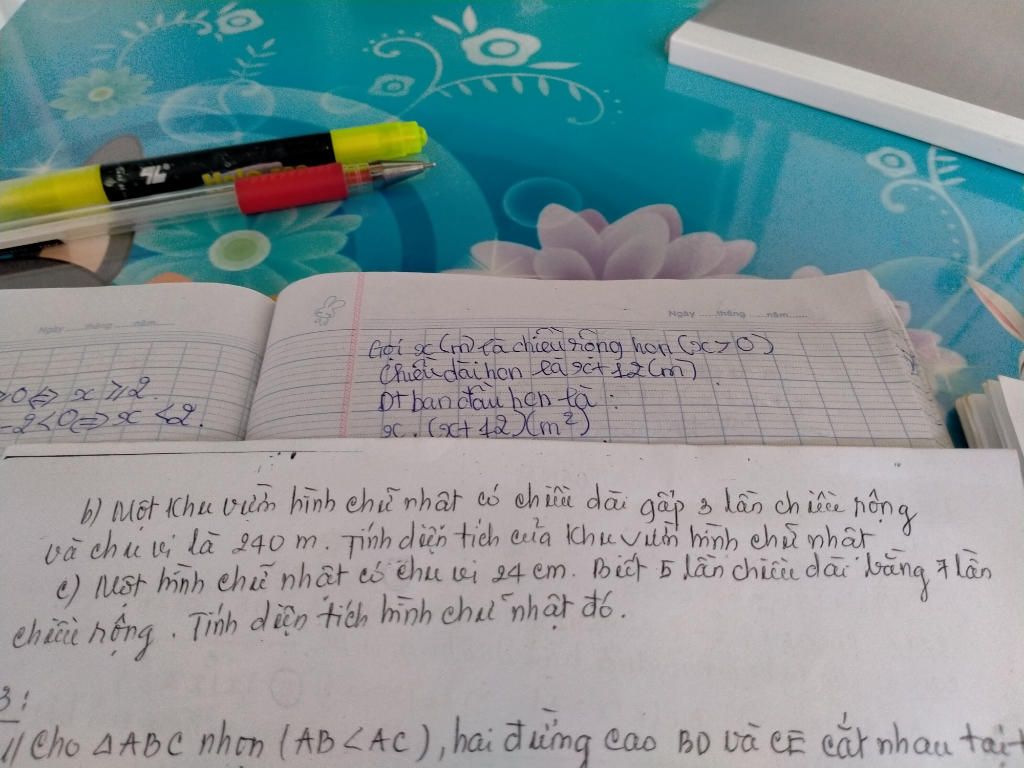 Ngày ......tháng ......năm......
Ngày ......tháng ......năm......
Gọi x(m) là chiều rộng hcn (x>0)
Chiều dài hcn là x+12(m)
Dt ban đầu hcn là :
x. (x+12)(m²)
>0⇔ x ≥ 2.
-2<0⇔ x <2.
b) Một khu vườn hình chữ nhật có chiều dài gấp 3 lần chiều rộng
và chu vi là 240 m. Tính diện tích của khu vườn hình chữ nhật
c) Một hình chữ nhật có chu vi 24 cm. Biết 5 lần chiều dài bằng 7 lần
chiều rộng. Tính diện tích hình chữ nhật đó.
3:
1/ Cho △ABC nhọn (AB<AC), hai đường cao BD và CE cắt nhau tại